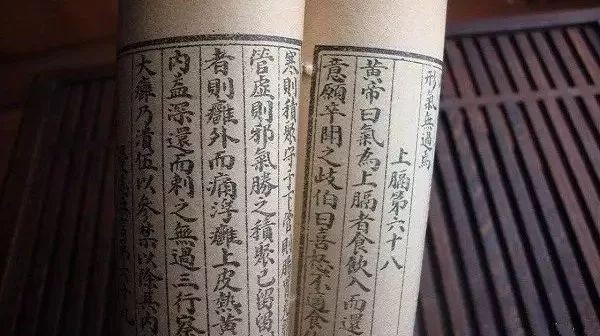 形氣無過焉
上膈第六十八
黃帝曰氣為上膈者食飲入而還
意願卒聞之歧伯曰喜怒不適食
寒則積聚守于下管則腸胃
管虛則邪氣勝之積聚已留留
者則癰外而痛浮癰上皮熱黃
內益深還而刺之無過三行察
大癰乃潰伍以參禁以除其內